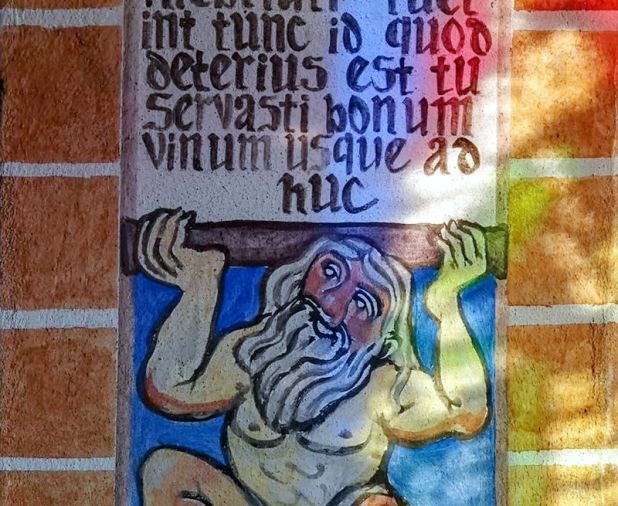 inebriati fuer
int tunc id quod
deterius est tu
servasti bonum
vinum usque ad
huc